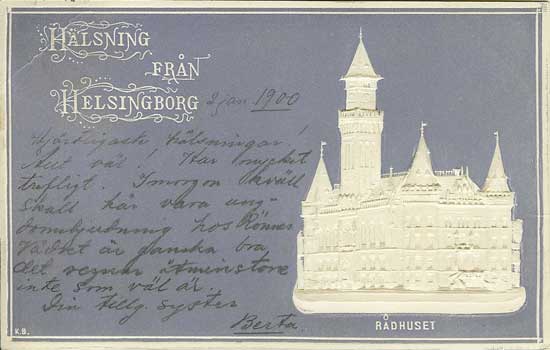 HÄLSNING
FRÅN
HELSINGBORG 2 jan 1900
Hjärtligaste hälsningar!
Allt väl! Har mycket
trefligt. I morgon kväll
skall här vara ung-
domsbjudning hos
Vädret är ganska bra,
det regnar åtminstone
inte som väl är.
Din tillg. syster
Berta.
K.B.
RÅDHUSET